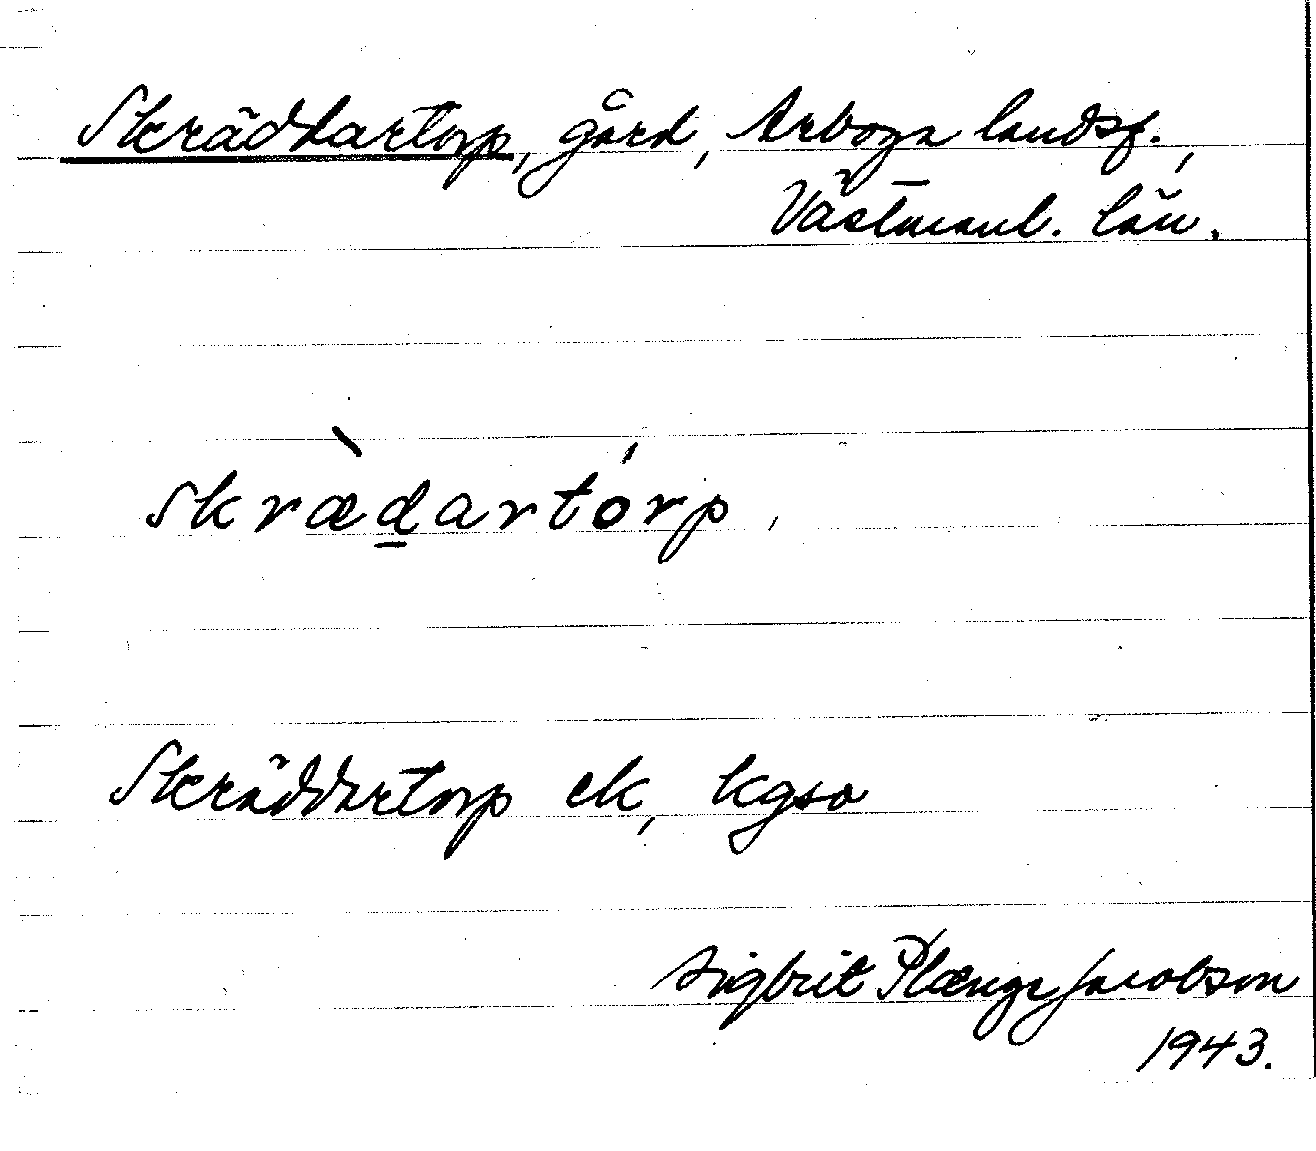 Skräddartorp, gård, Arboga landsf.,
Västmanl. län.
skræ̀d̲artórp,
Skräddartorp ek, kgso
Sigbrit Plænge Jacobson
1943.